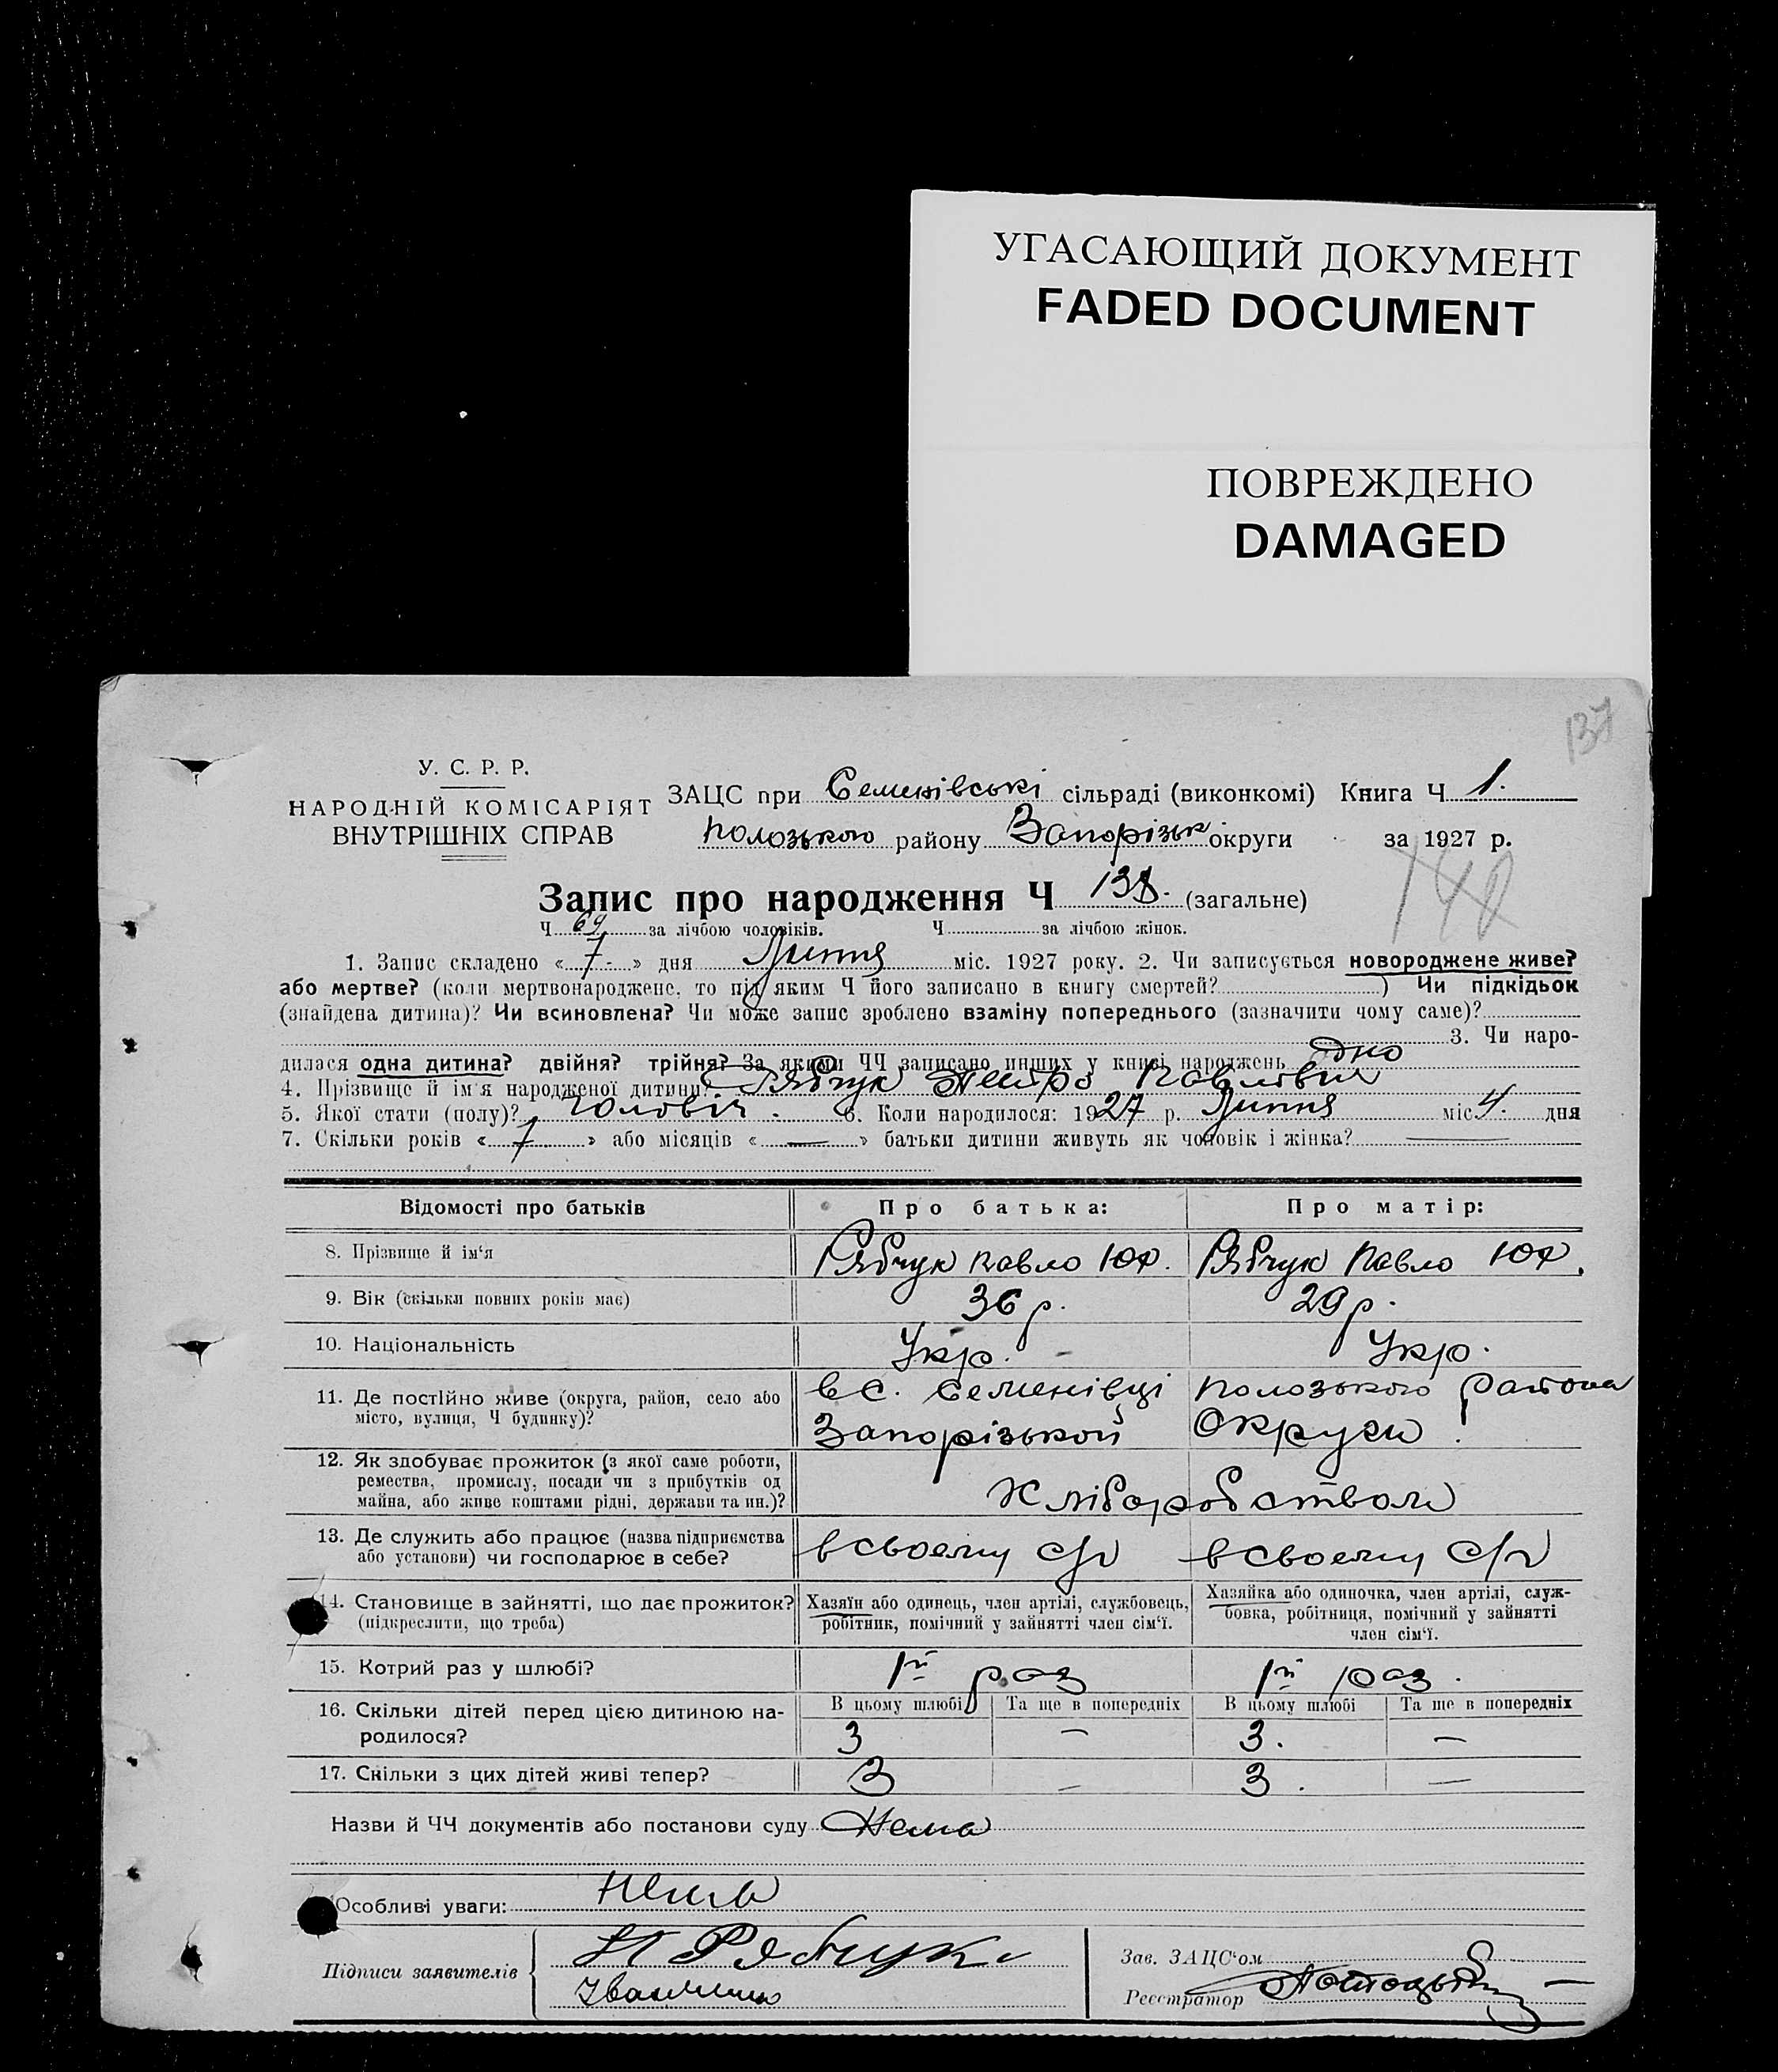 УГАСАЮЩИЙ ДОКУМЕНТ
FADED DOCUMENT
ПОВРЕЖДЕНО
DAMAGED
137
У. С. Р. Р.
НАРОДНІЙ КОМІСАРІЯТ
ВНУТРІШНІХ СПРАВ
ЗАЦС при Семенівські сільраді (виконкомі) Книга Ч 1.
Полозького району Запорізьк округи за 1927 р.
140
Запис про народження Ч 138. (загальне)
Ч 69 за лічбою чоловіків. Ч за лічбою жінок.
1. Запис складено « 7 - » дня Липня міс. 1927 року. 2. Чи записується новороджене живе?
або мертве? (коли мертвонароджене, то під яким Ч його записано в книгу смертей? ) Чи підкідьок
(знайдена дитина)? Чи всиновлена? Чи може запис зроблено взаміну попереднього (зазначити чому саме)?
3. Чи наро-
дилася одна дитина? двійня? трійня? За якими ЧЧ записано инших у книзі народжень одно
4. Прізвище й ім'я народженої дитини? Рябчук Петро Павлович
5. Якої стати (полу)? Чоловіч. 6. Коли народилося: 1927 р. Липня міс 4. дня
7. Скільки років « 7 » або місяців « — » батьки дитини живуть як чоловік і жінка? —
Відомості про батьків Про батька: Про матір:
8. Прізвище й ім'я Рябчук Павло Юх. Рябчук Павло Юх.
9. Вік (скільки повних років має) 36 р. 29 р.
10. Національність Укр. - Укр.
11. Де постійно живе (округа, район, село або в с. Семенівці Полозького района
місто, вулиця, Ч будинку)? Запорізькой Округи !
12. Як здобуває прожиток (з якої саме роботи,
ремества, промислу, посади чи з прибутків од
майна, або живе коштами рідні, держави та ин.)? Хліборобством
13. Де служить або працює (назва підприємства
або установи) чи господарює в себе? в своему с/г в своему с/г
14. Становище в зайнятті, що дає прожиток? Хазяїн або одинець, член артілі, службовець, Хазяйка або одиночка, член артілі, служ-
(підкреслити, що треба) робітник, помічний у зайнятті член сім'ї. бовка, робітниця, помічний у зайнятті
член сім'ї.
15. Котрий раз у шлюбі? 1й раз 1й раз.
16. Скільки дітей перед цією дитиною на- В цьому шлюбі Та ще в попередніх В цьому шлюбі Та ще в попередніх
родилося? 3 — 3. —
17. Скільки з цих дітей живі тепер? 3 — 3. —
Назви й ЧЧ документів або постанови суду Нема
Особливі уваги: Нема
Підписи заявителів П Рябчук
Зав. ЗАЦС'ом
Реєстратор